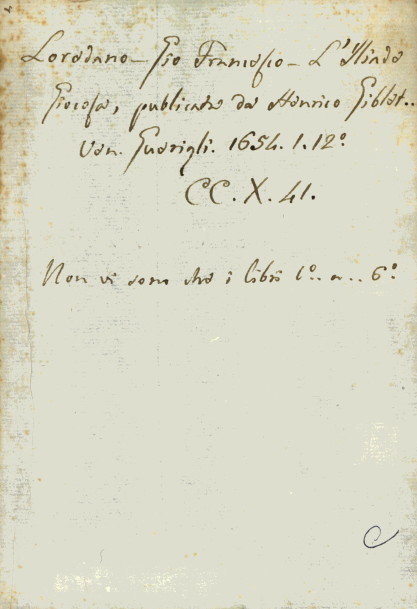 Loredano - Gio Francesco - L'Iliade
Giocosa, publicata da Henrico Giblet..
Ven. Guerigli. 1654. 1. 12º
CC. X. 41.
Non vi sono che i libri 1º.. a .. 6º
C